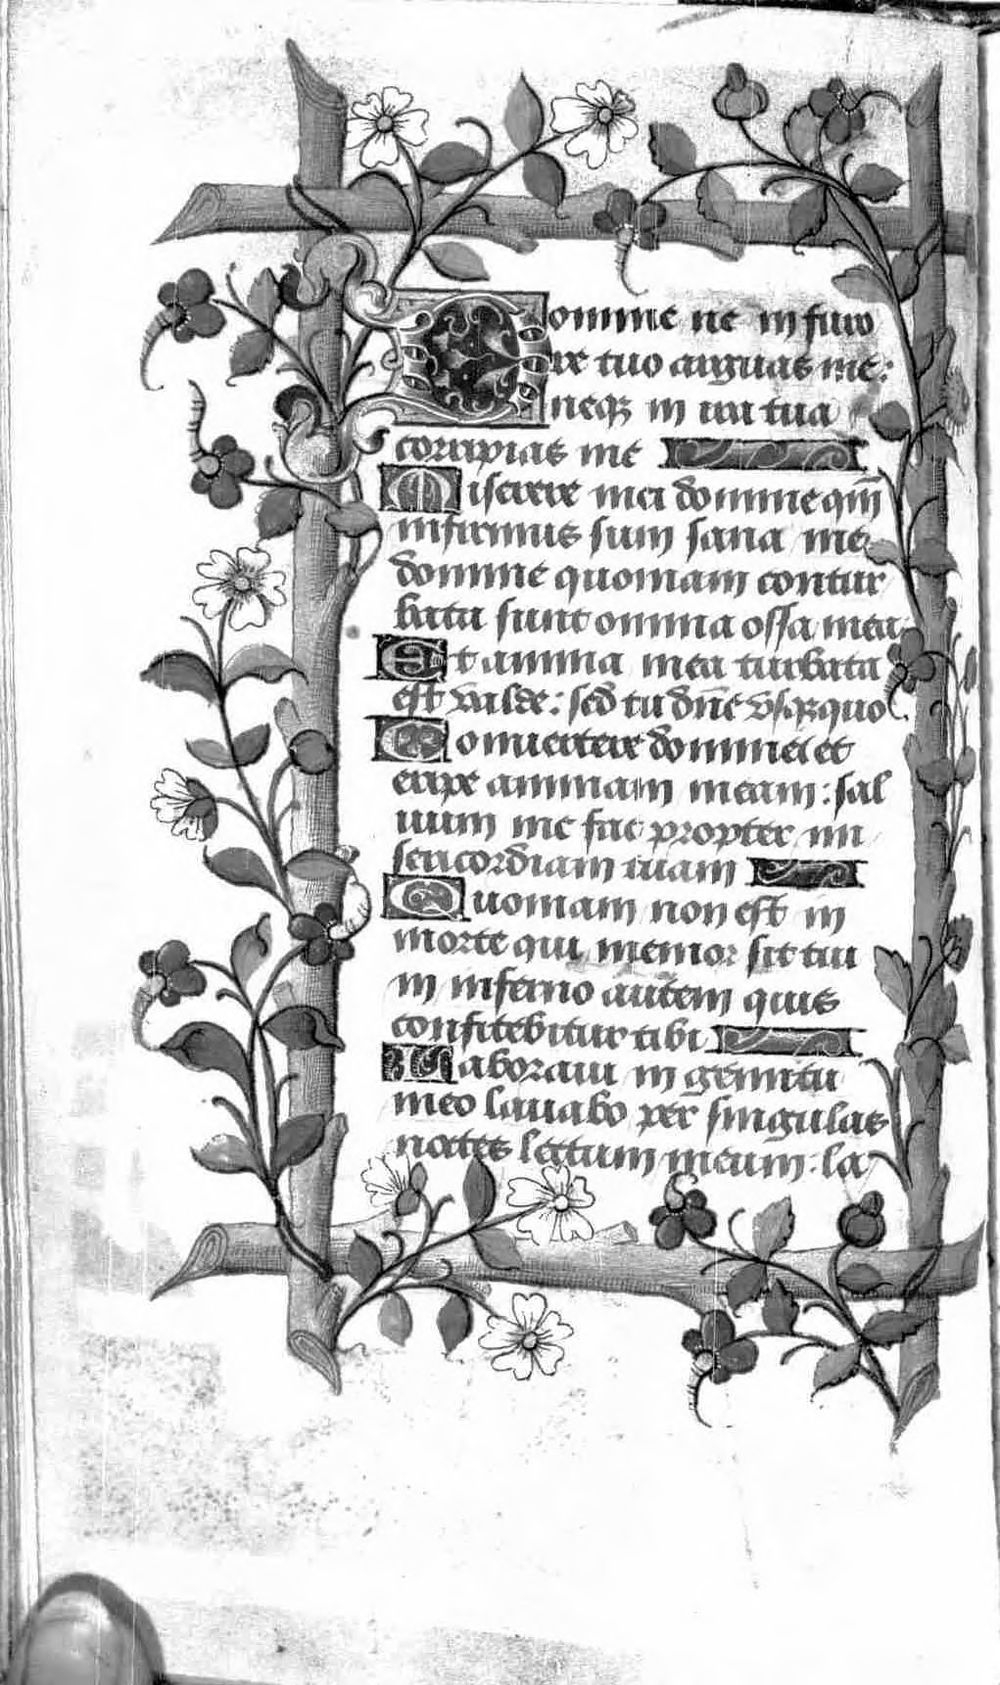 Domine ne in furo
re tuo arguas me:
neqꝫ in ira tua
corripias me
Miserere mei domine qm̄
infirmus sum sana me
domine quoniam contur
bata sunt omnia ossa mea
Et anima mea turbata
est valde: sed tu dn̄e vsqꝫquo
Conuertere domine et
eripe animam meam: sal
uum me fac propter mi
sericordiam tuam
Quoniam non est in
morte qui memor sit tui
in inferno autem quis
confitebitur tibi
Laboraui in gemitu
meo lauabo per singulas
noctes lectum meum: la